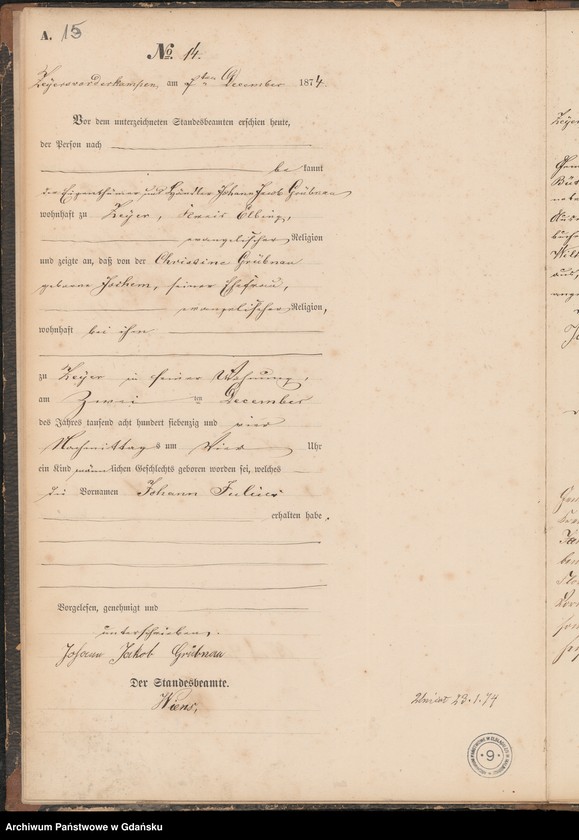 A. 15
№ 14.
Zeyersvorderkampen, am 7ten December 1874.
Vor dem unterzeichneten Standesbeamten erschien heute,
der Person nach
bekannt
der Eigenthümer und Händler Johann Jacob Grübnau
wohnhaft zu Zeyer, Kreis Elbing,
evangelischer Religion
und zeigte an, daß von der Christine Grübnau
geborne Jochem, seiner Ehefrau,
evangelischer Religion,
wohnhaft bei ihm
zu Zeyer in seiner Wohnung,
am Zwei ten December
des Jahres tausend acht hundert siebenzig und vier
Nachmittags um Vier Uhr
ein Kind männlichen Geschlechts geboren worden sei, welches
die Vornamen Johann Julius
erhalten habe.
Vorgelesen, genehmigt und
unterschrieben.
Johann Jakob Grübnau
Der Standesbeamte.
Wiens.
23.1.74
9
Archiwum Państwowe w Gdańsku